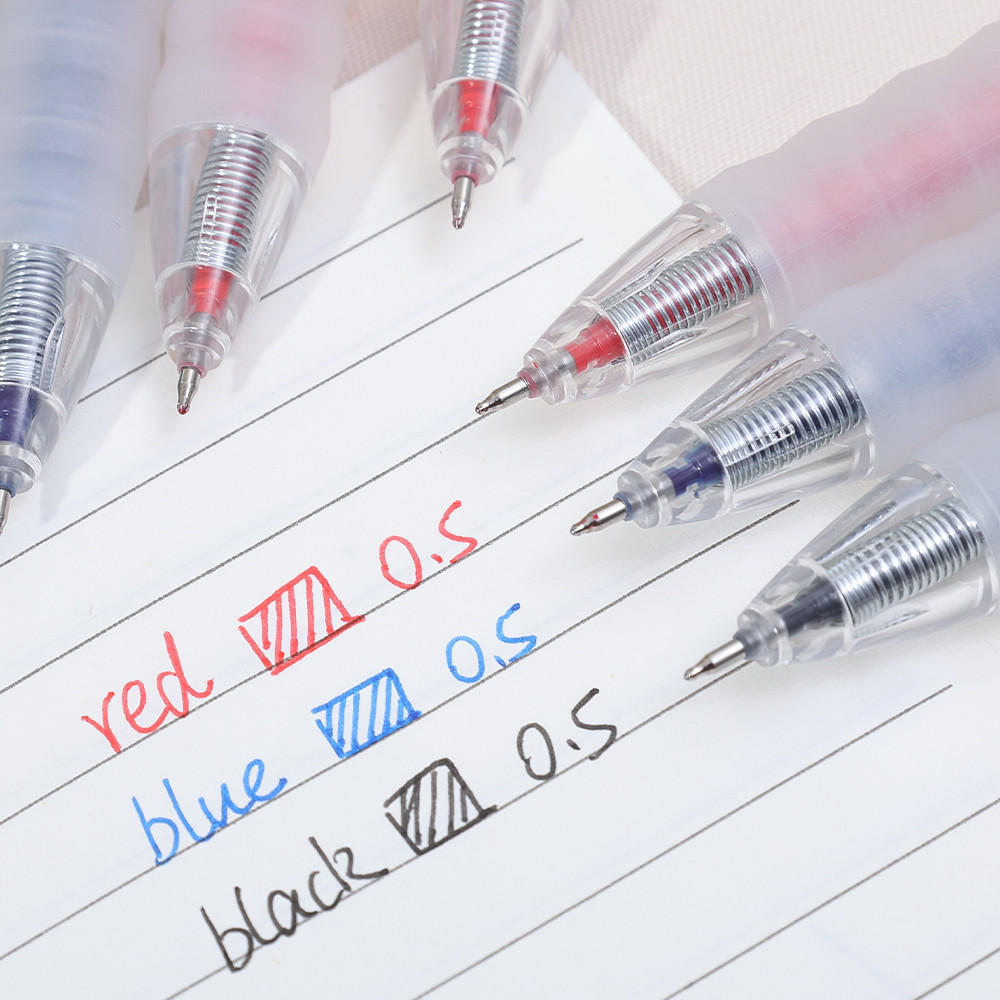 red 0.5
blue 0.5
black 0.5